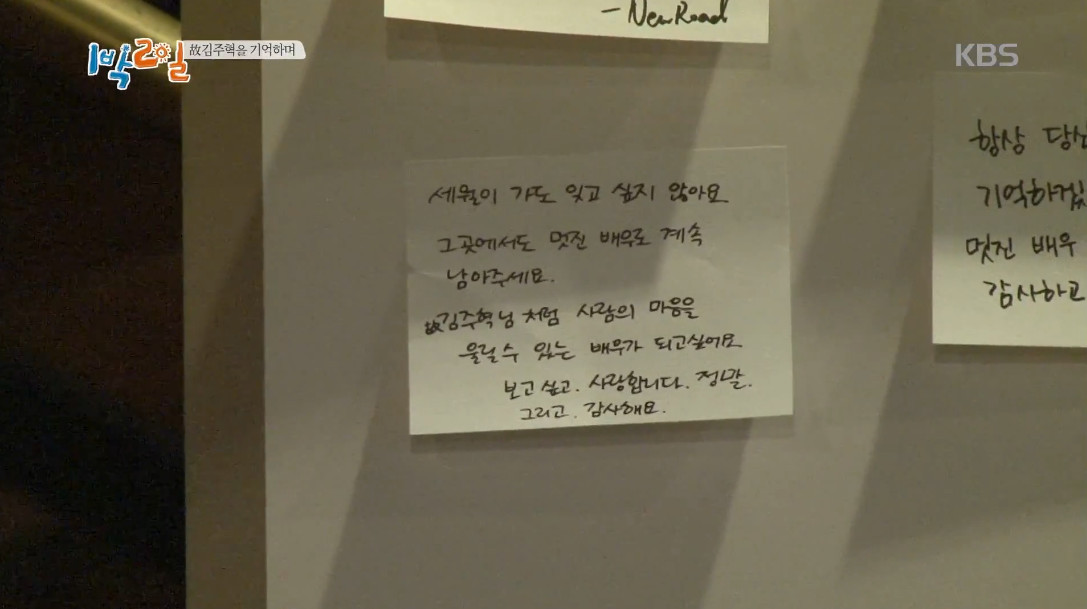 - New Road
1박2일 故김주혁을 기억하며
KBS
세월이 가도 잊고 싶지 않아요
그곳에서도 멋진 배우로 계속
남아주세요.
故김주혁님 처럼 사람의 마음을
울릴수 있는 배우가 되고싶어요
보고 싶고. 사랑합니다. 정말.
그리고. 감사해요.
항상 당신
기억하겠
멋진 배우
감사하고